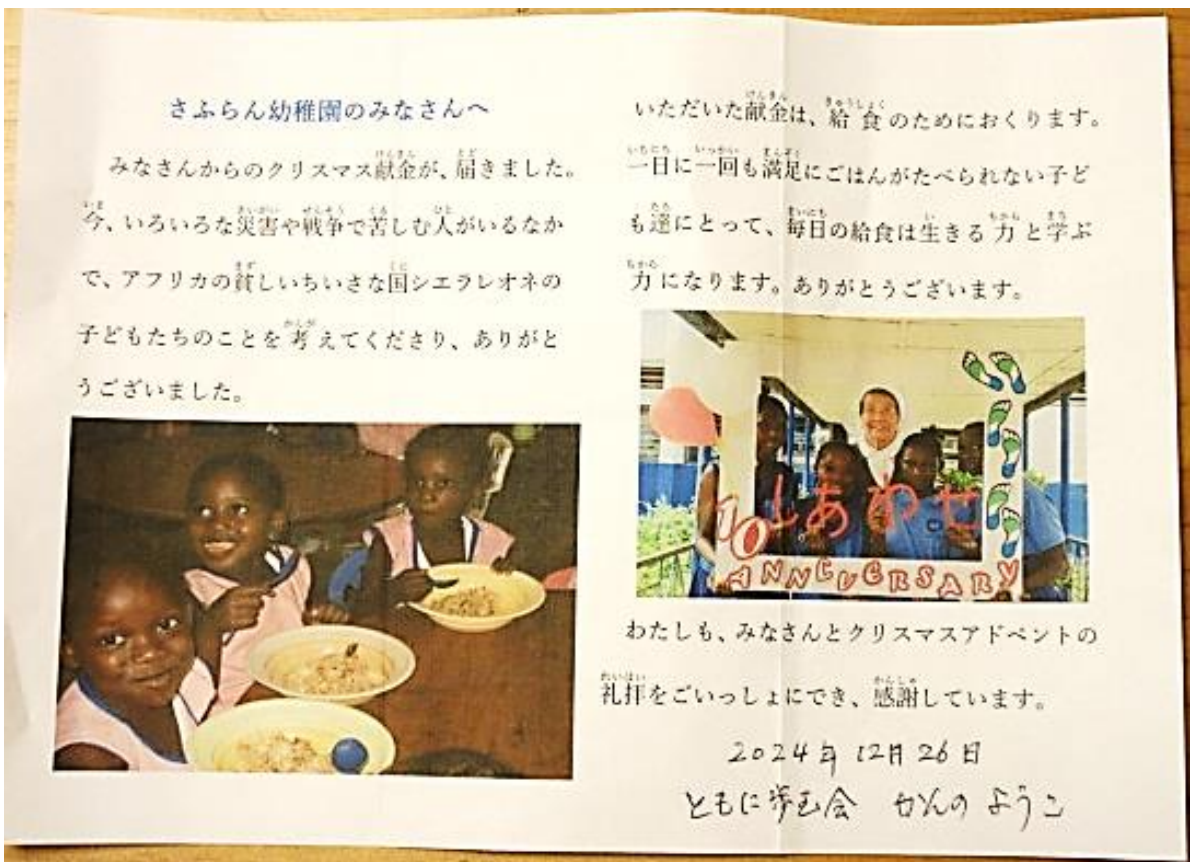 さふらん幼稚園のみなさんへ
みなさんからのクリスマス献金が、届きました。
今、いろいろな災害や戦争で苦しむ人がいるなか
で、アフリカの貧しいちいさな国シエラレオネの
子どもたちのことを考えてくださり、ありがと
うございました。
いただいた献金は、給食のためにおくります。
一日に一回も満足にごはんがたべられない子ど
も達にとって、毎日の給食は生きる力と学ぶ
力になります。ありがとうございます。
しあわせ
10
ANNIVERSARY
わたしも、みなさんとクリスマスアドベントの
礼拝をごいっしょにでき、感謝しています。
2024年12月26日
ともに歩む会 かんの ようこ